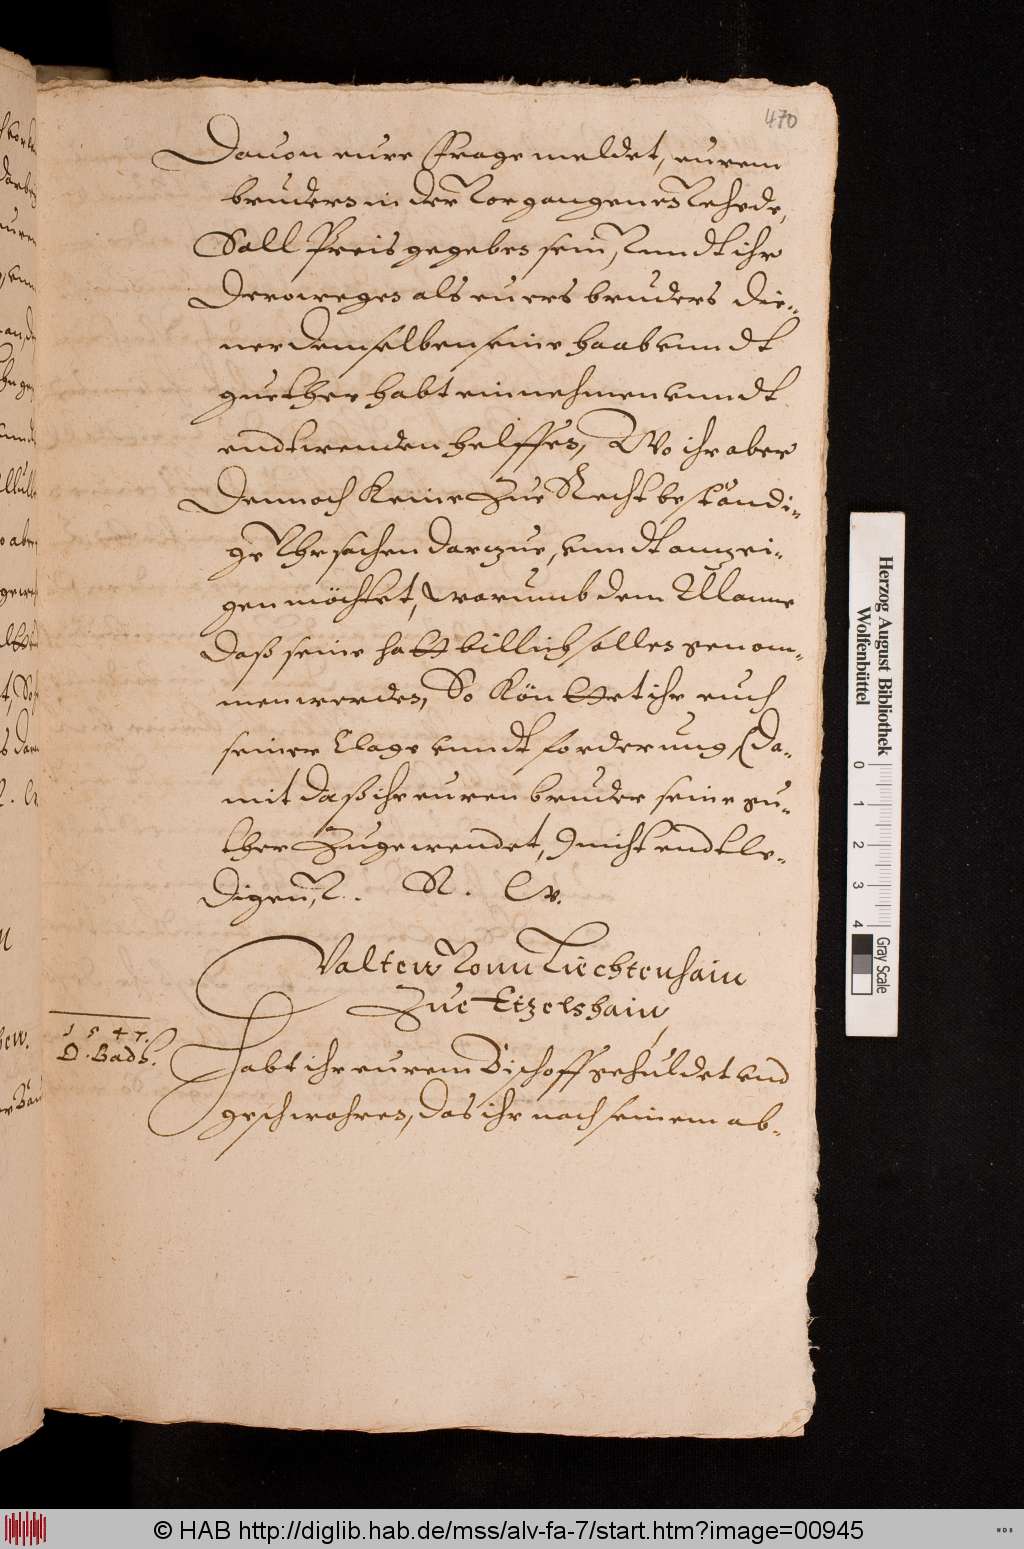 470
Dauon eure Frage meldet, eurem
bruders in der Vorgangenen Vehede,
Soll Preis gegeben sein, Vnndt ihr
Derowegen als euers bruders die-
ner demselben seine haab vnndt
guether habt einnehmen vnndt
endtwenden helffen, Wo ihr aber
Dennoch Keine Zue Recht bestendi-
ge Vhrsachen darzue, vnndt anzei-
gen möchtet, warumb dem Manne
daß seine hatt billich sollen genom-
men werden, So Köndttet ihr euch
seiner Clage vnndt forderung, (da-
mit daß ihr euren bruder seine gu-
ther Zugewendet,) nicht endtle-
digen, V. R. W.
Valten Vonn Liechtenhain
Zue Etzelshain
1547.
D. Bads.
Habt ihr eurem Bischoff gehuldet vnd
geschwohren, das ihr nach seinem ab-
Herzog August Bibliothek
Wolfenbüttel
0 1 2 3 4
Gray Scale
© HAB http://diglib.hab.de/mss/alv-fa-7/start.htm?image=00945